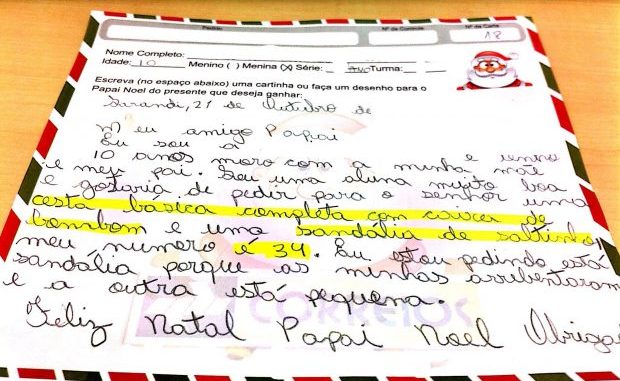 Pedido Nº de Controle Nº da Carta
18
Nome Completo:
Idade: 10 Menino ( ) Menina (X) Série: Turma:
Escreva (no espaço abaixo) uma cartinha ou faça um desenho para o
Papai Noel do presente que deseja ganhar:
Sarandi, 21 de Outubro de
Meu amigo Papai
Eu sou a e tenho
10 anos moro com a minha mãe
e meu pai. Sou uma aluna muito boa
e gostaria de pedir para o senhor uma
cesta basica completa com caixa de
bombom e uma sandália de saltinho
meu número é 34. Eu estou pedindo está
sandália porque as minhas arrebentaram
e a outra está pequena.
Feliz Natal Papai Noel
CORREIOS